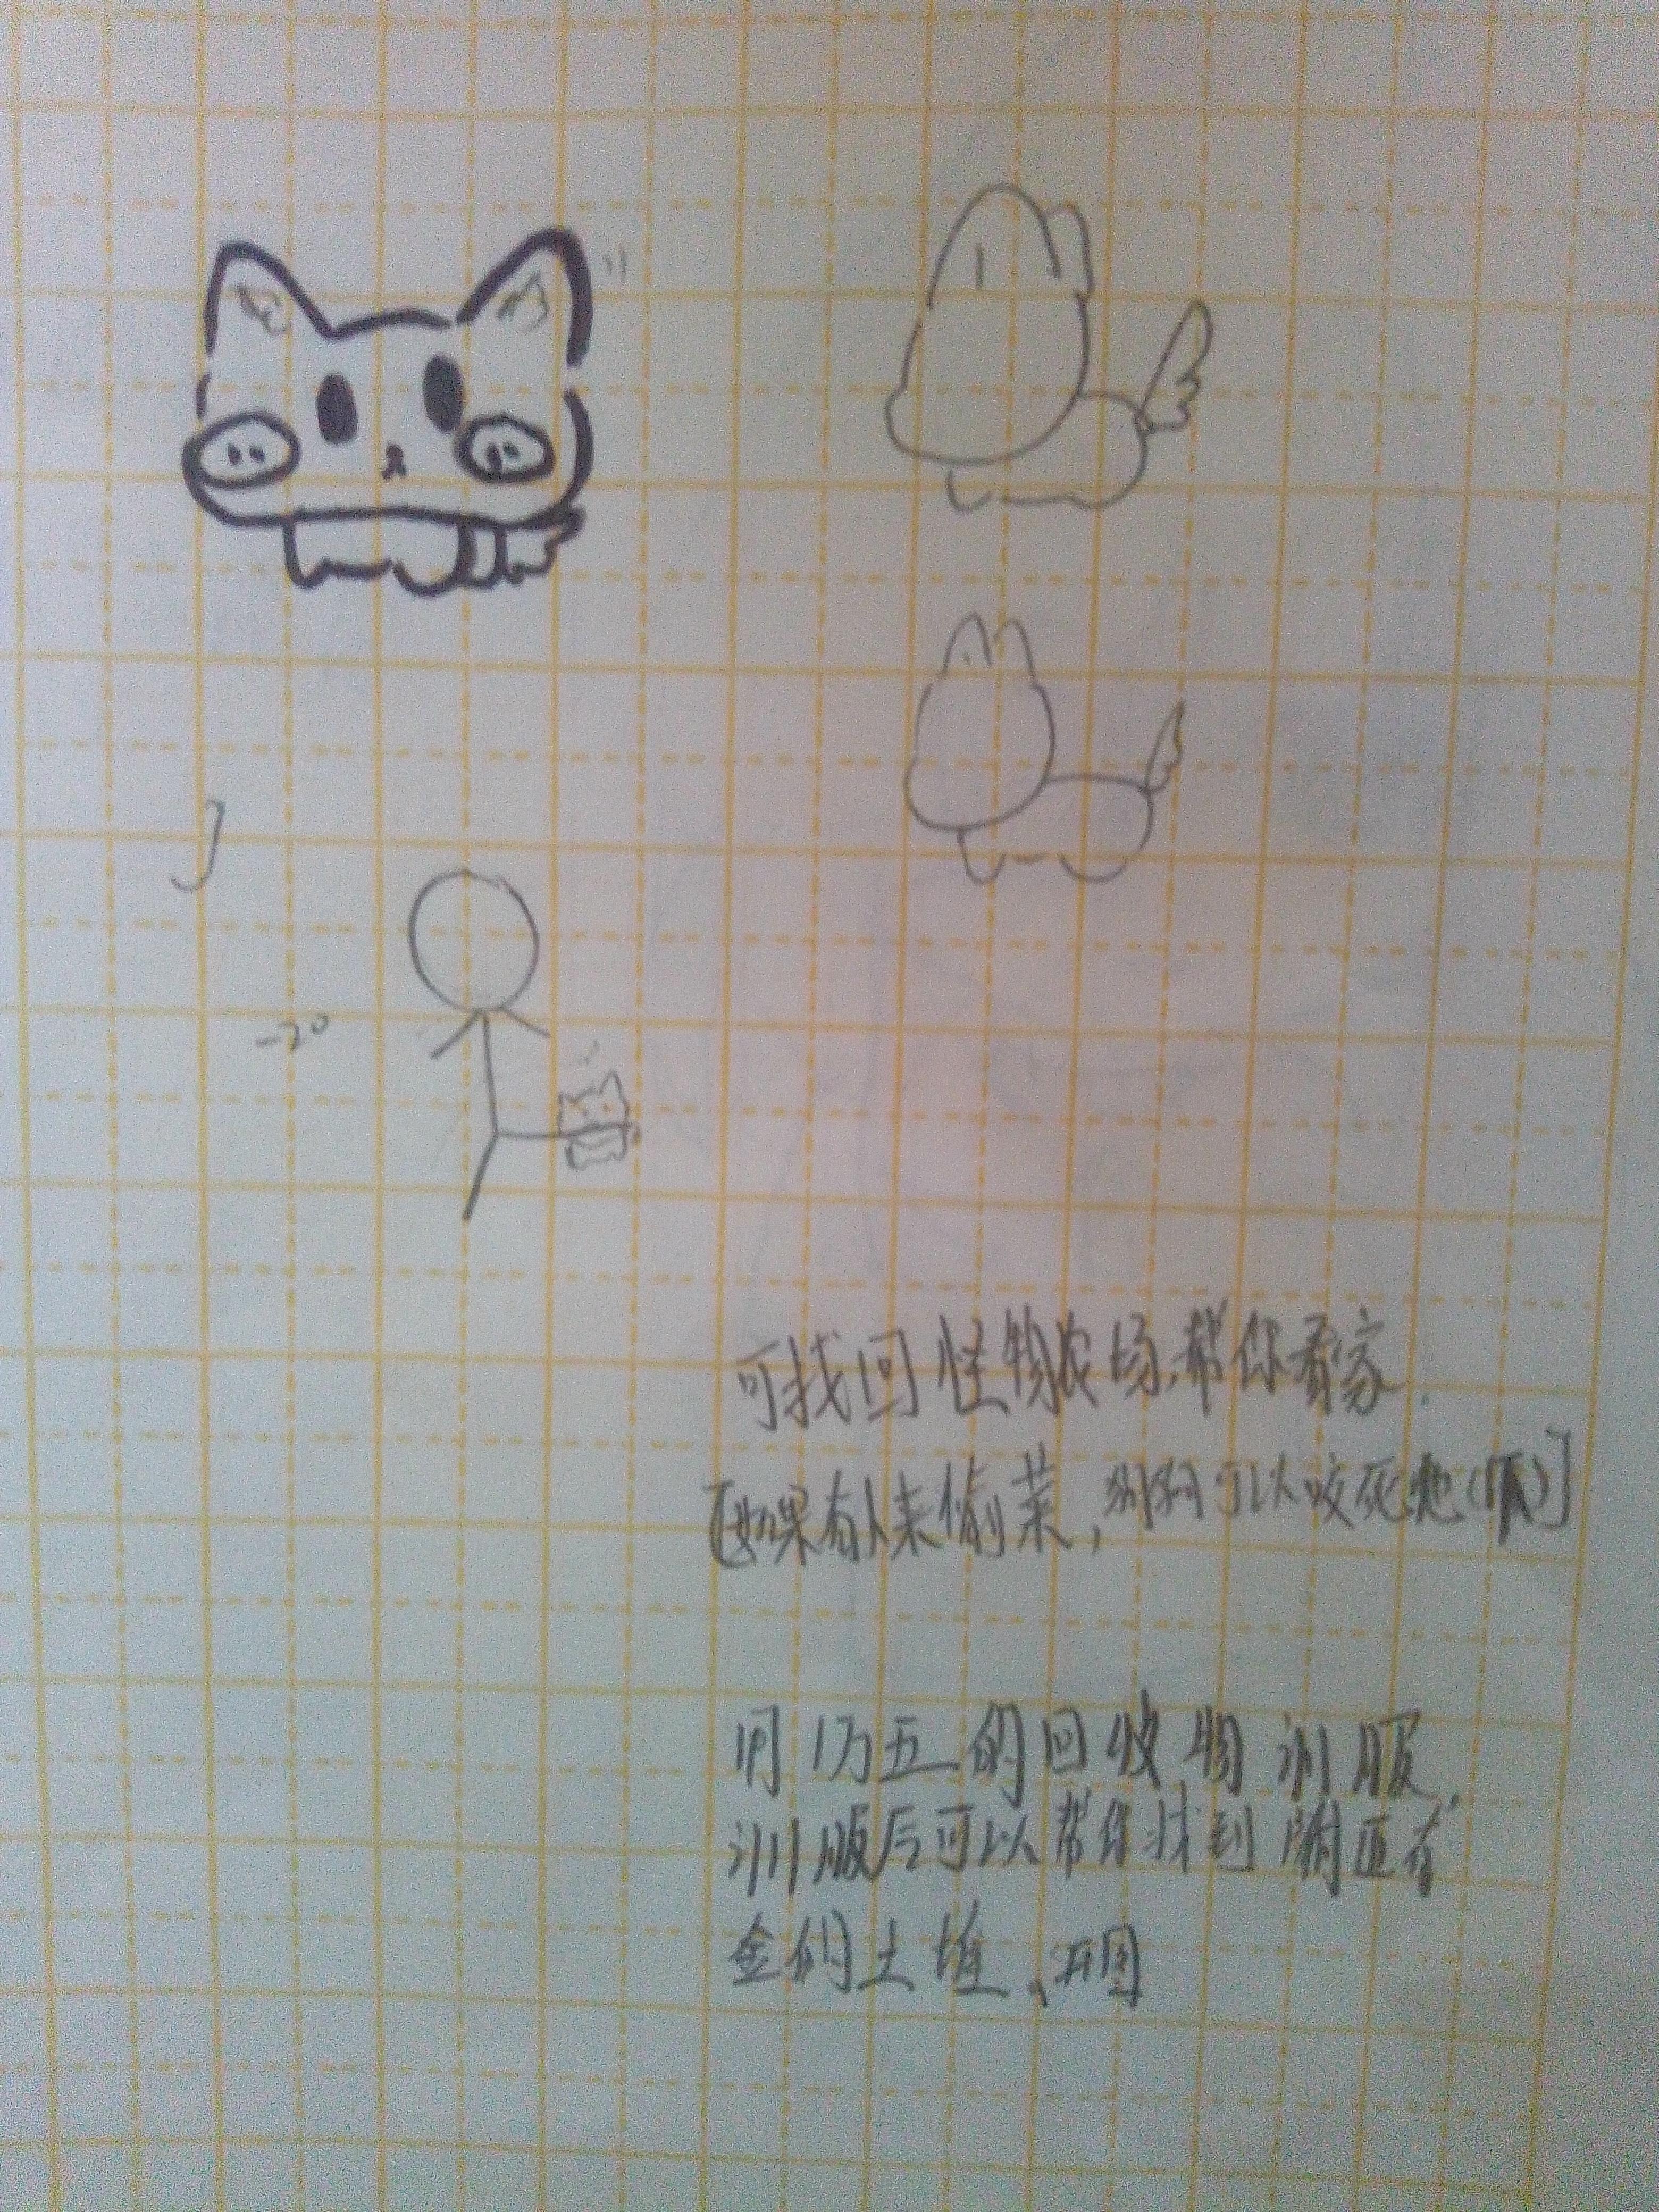 -20
可找回怪物农场,帮你看家.
[如果有人来偷菜,狗狗可以咬死他()]
用1万五的回收物训服,
训服后可以帮你找到附近有
金的土堆、